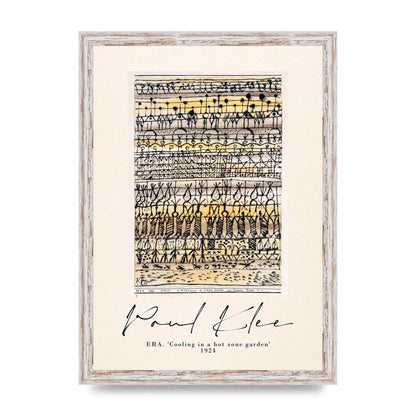 Paul Klee
ERA. 'Cooling in a hot zone garden'
1924